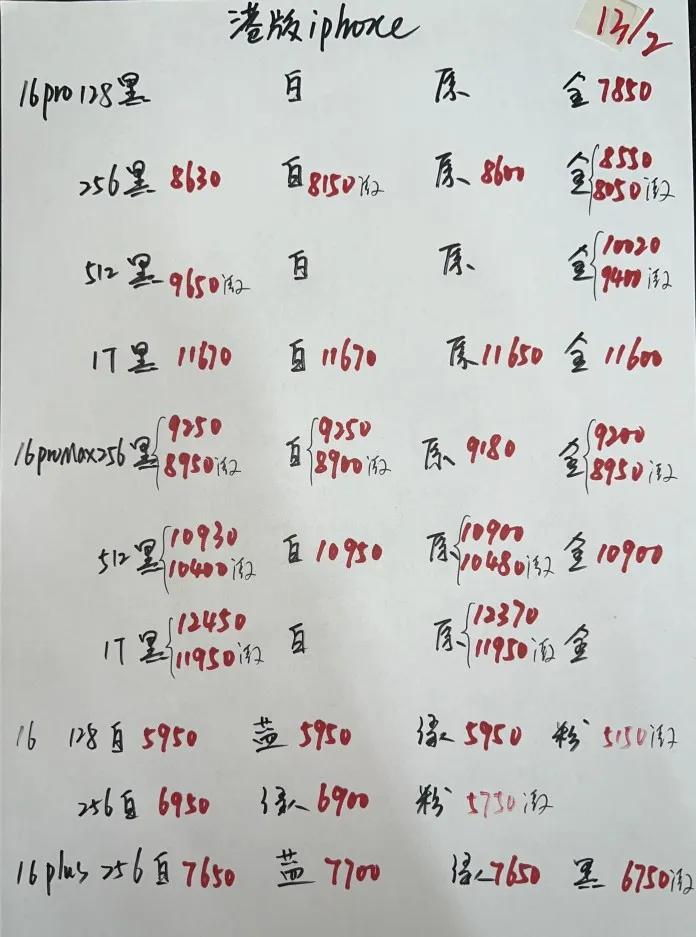 港版iphone 13/2
16pro 128黑 白 原 金 7850
256黑 8630 白 8150激 原 8600 金 8550 8050激
512黑 9650激 白 原 金 10020 9400激
1T黑 11670 白 11670 原 11650 金 11600
16proMax256黑 9250 8950激 白 9250 8900激 原 9180 金 9200 8950激
512黑 10930 10400激 白 10950 原 10900 10480激 金 10900
1T黑 12450 11950激 白 原 12370 11950激 金
16 128白 5950 蓝 5950 绿 5950 粉 5150激
256白 6950 绿 6900 粉 5750激
16plus 256白 7650 蓝 7700 绿 7650 黑 6750激